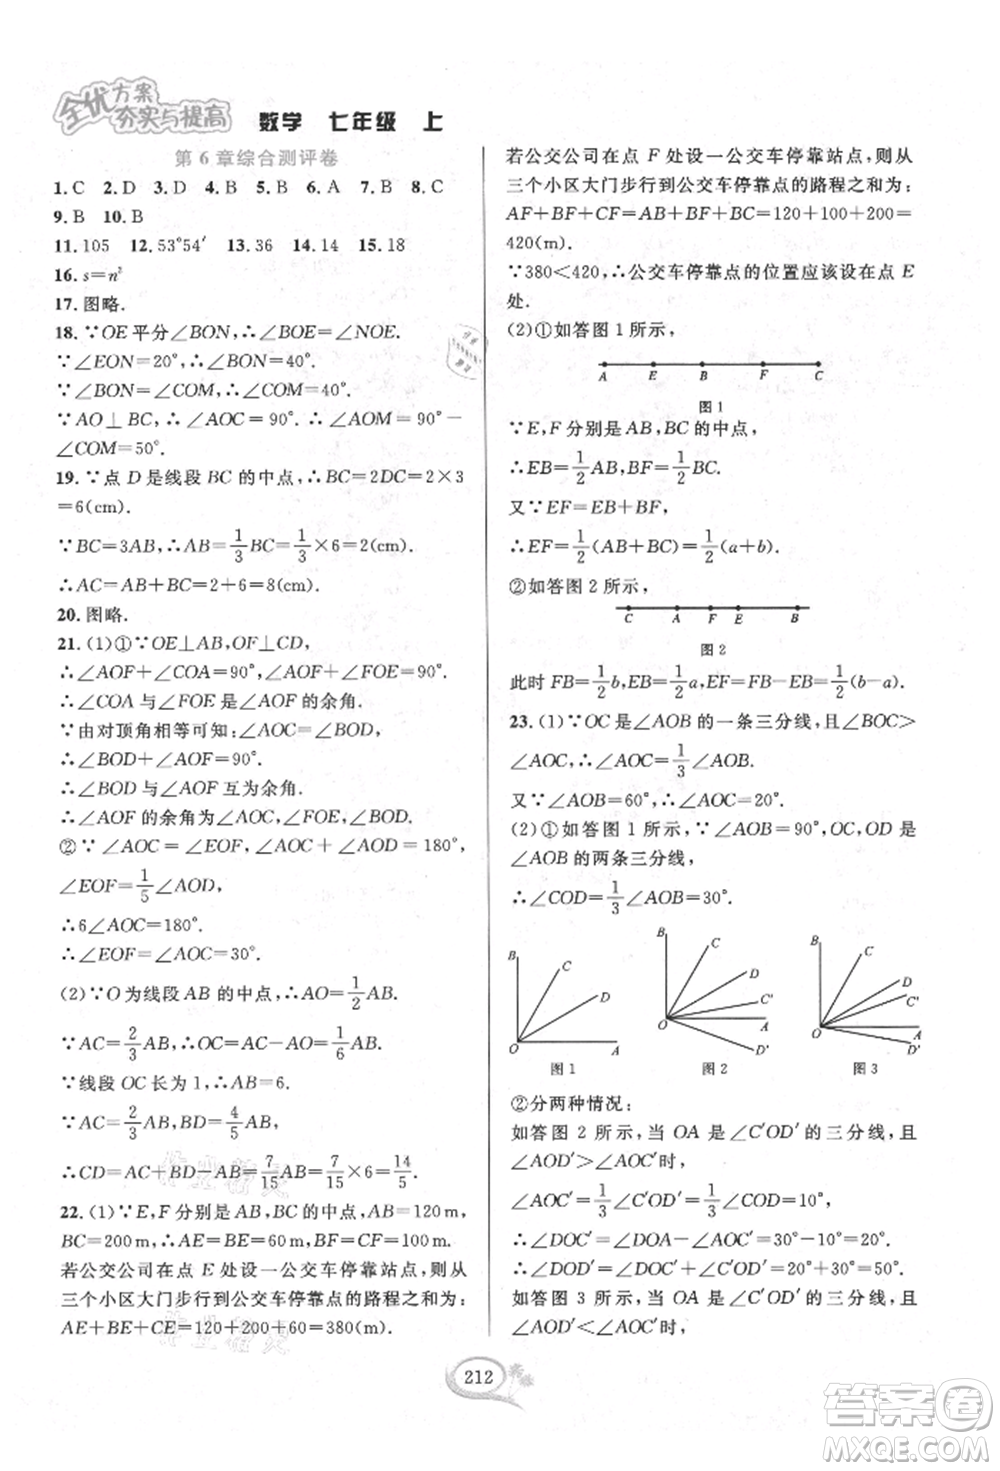 全优方案
夯实与提高
数学 七年级 上
第6章综合测评卷
1.C 2.D 3.D 4.B 5.B 6.A 7.B 8.C
9.B 10.B
11.105 12.53°54′ 13.36 14.14 15.18
16.s=n²
17.图略.
18.∵OE平分∠BON,∴∠BOE=∠NOE.
∵∠EON=20°,∴∠BON=40°.
∵∠BON=∠COM,∴∠COM=40°.
∵AO⊥BC,∴∠AOC=90°.∴∠AOM=90°-
∠COM=50°.
19.∵点D是线段BC的中点,∴BC=2DC=2×3
=6(cm).
∵BC=3AB,∴AB=1/3BC=1/3×6=2(cm).
∴AC=AB+BC=2+6=8(cm).
20.图略.
21.(1)①∵OE⊥AB,OF⊥CD,
∴∠AOF+∠COA=90°,∠AOF+∠FOE=90°.
∴∠COA与∠FOE是∠AOF的余角.
∵由对顶角相等可知:∠AOC=∠BOD,
∴∠BOD+∠AOF=90°.
∴∠BOD与∠AOF互为余角.
∴∠AOF的余角为∠AOC,∠FOE,∠BOD.
②∵∠AOC=∠EOF,∠AOC+∠AOD=180°,
∠EOF=1/5∠AOD,
∴6∠AOC=180°.
∴∠EOF=∠AOC=30°.
(2)∵O为线段AB的中点,∴AO=1/2AB.
∵AC=2/3AB,∴OC=AC-AO=1/6AB.
∵线段OC长为1,∴AB=6.
∵AC=2/3AB,BD=4/5AB,
∴CD=AC+BD-AB=7/15AB=7/15×6=14/5.
22.(1)∵E,F分别是AB,BC的中点,AB=120m,
BC=200m,∴AE=BE=60m,BF=CF=100m.
若公交公司在点E处设一公交车停靠站点,则从
三个小区大门步行到公交车停靠点的路程之和为:
AE+BE+CE=120+200+60=380(m).
若公交公司在点F处设一公交车停靠站点,则从
三个小区大门步行到公交车停靠点的路程之和为:
AF+BF+CF=AB+BF+BC=120+100+200=
420(m).
∵380<420,∴公交车停靠点的位置应该设在点E
处.
(2)①如答图1所示,
A E B F C
图1
∵E,F分别是AB,BC的中点,
∴EB=1/2AB,BF=1/2BC.
又∵EF=EB+BF,
∴EF=1/2(AB+BC)=1/2(a+b).
②如答图2所示,
C A F E B
图2
此时FB=1/2b,EB=1/2a,EF=FB-EB=1/2(b-a).
23.(1)∵OC是∠AOB的一条三分线,且∠BOC>
∠AOC,∴∠AOC=1/3∠AOB.
又∵∠AOB=60°,∴∠AOC=20°.
(2)①如答图1所示,∵∠AOB=90°,OC,OD是
∠AOB的两条三分线,
∴∠COD=1/3∠AOB=30°.
B C D O A
图1
B D C′ A O D′
图2
B D C′ A O D′
图3
②分两种情况:
如答图2所示,当OA是∠C′OD′的三分线,且
∠AOD′>∠AOC′时,
∠AOC′=1/3∠C′OD′=1/3∠COD=10°,
∴∠DOC′=∠DOA-∠AOC′=20°.
∴∠DOD′=∠DOC′+∠C′OD′=50°.
如答图3所示,当OA是∠C′OD′的三分线,且
∠AOD′<∠AOC′时,
212
答案卷
MXQE.COM